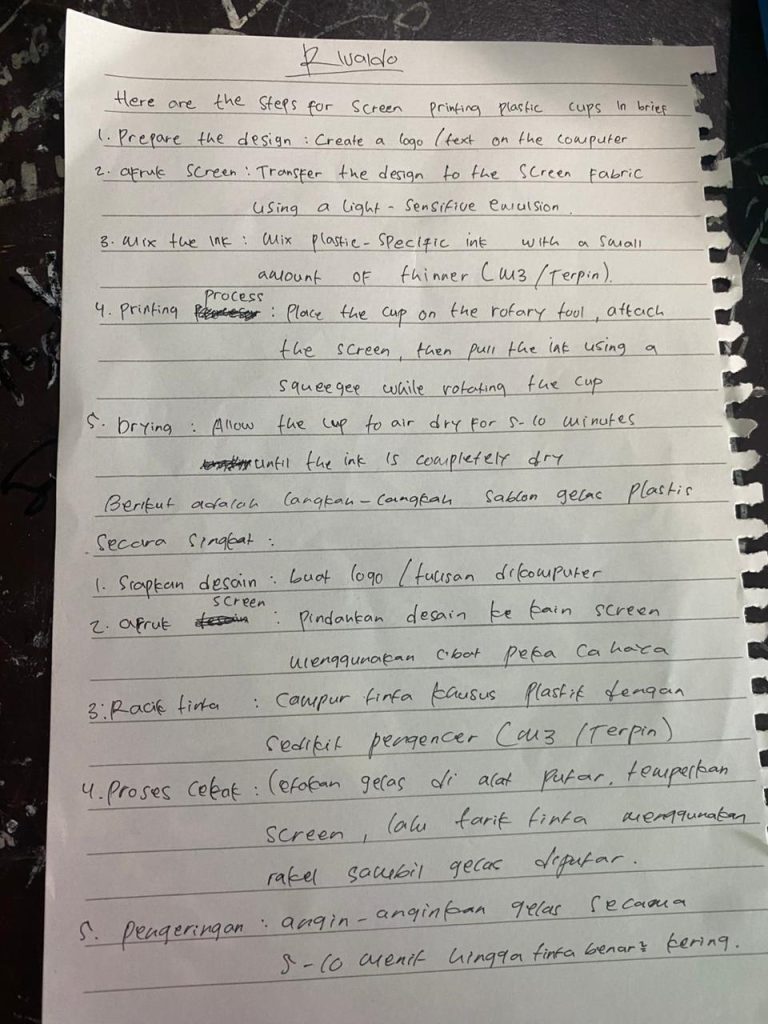 Rivaldo
Here are the steps for screen printing plastic cups in brief
1. Prepare the design : Create a logo / text on the computer
2. afruk screen : Transfer the design to the screen fabric
using a light - sensitive emulsion.
3. mix the ink : mix plastic - specific ink with a small
amount of thinner (M3 / Terpin).
4. printing process : place the cup on the rotary tool, attach
the screen, then pull the ink using a
squeegee while rotating the cup
5. Drying : Allow the cup to air dry for 5-10 minutes
until the ink is completely dry
Berikut adalah langkah - langkah sablon gelas plastis
secara singkat :
1. Siapkan desain : buat logo / tulisan dikomputer
2. afruk screen : pindahkan desain ke kain screen
menggunakan obat peka cahaya
3. Racik tinta : campur tinta khusus plastik dengan
sedikit pengencer (M3 / Terpin)
4. Proses cetak : letakan gelas di alat putar, tempelkan
screen, lalu tarik tinta menggunakan
rakel sambil gelas diputar.
5. pengeringan : angin - anginkan gelas secama
5-10 menit hingga tinta benar² kering.